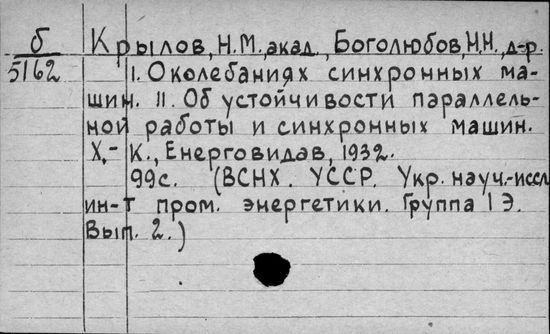 б Крылов, Н.М., акад., Боголюбов, Н.Н., д-р.
5162 I. О колебаниях синхронных ма-
шин. II. Об устойчивости параллель-
ной работы n синхронных машин.
Х.,- К., Енерговидав, 1932.
99с. (ВСНХ. УССР. Укр. науч.-иссл.
ин-т пром. энергетики. Группа I Э.
Вып. 2.)